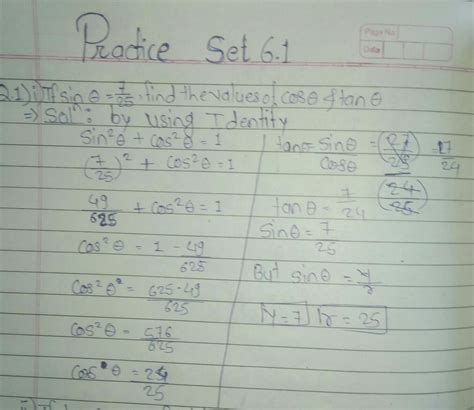 Page No
Date
Practice Set 6.1
Q.1) i) If sin θ = 7/25, find the values of cos θ & tan θ
⇒ Solⁿ: by using Identity
sin²θ + cos²θ = 1
(7/25)² + cos²θ = 1
49/625 + cos²θ = 1
cos²θ = 1 - 49/625
cos²θ = 625-49/625
cos²θ = 576/625
cos θ = 24/25
tanθ = sinθ/cosθ = (7/25)/(24/25) = 7/24
tan θ = 7/24
sin θ = 7/25
But sin θ = y/r
y = 7 r = 25